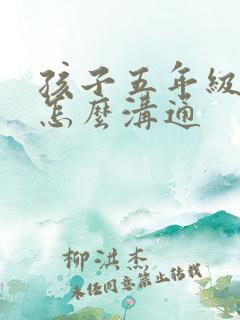 孩子五年級
怎麼溝通
柳洪杰
未经同意禁止转载